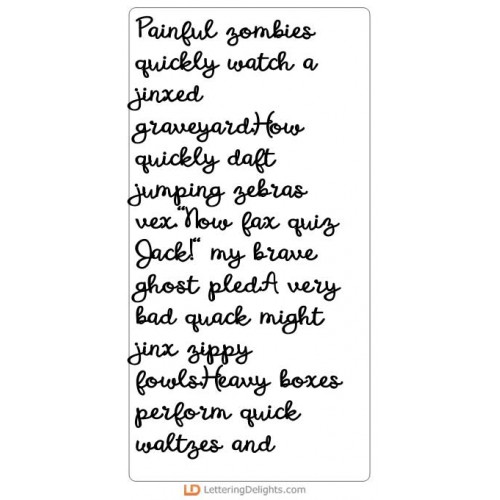 Painful zombies
quickly watch a
jinxed
graveyard.How
quickly daft
jumping zebras
vex."Now fax quiz
Jack!" my brave
ghost pled.A very
bad quack might
jinx zippy
fowls.Heavy boxes
perform quick
waltzes and
LD LetteringDelights.com